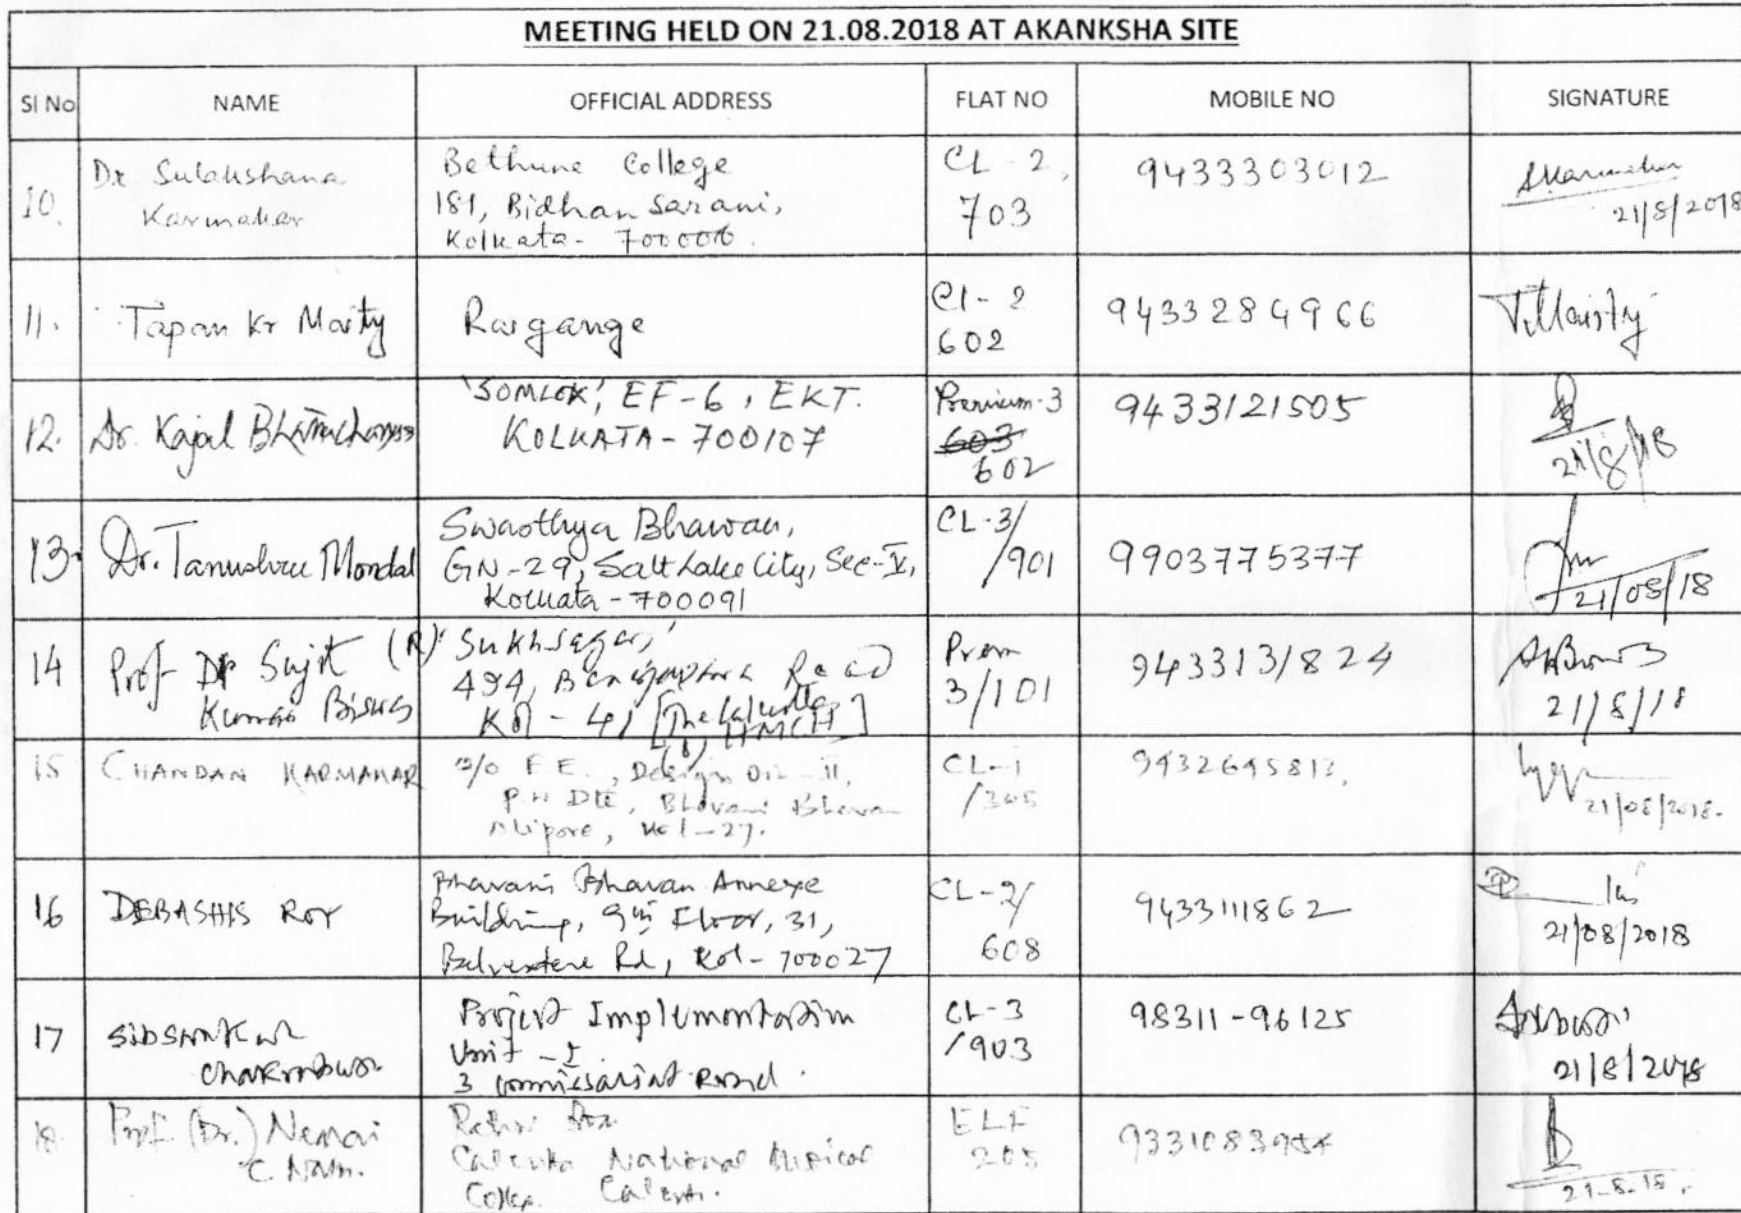 MEETING HELD ON 21.08.2018 AT AKANKSHA SITE
Sl No NAME OFFICIAL ADDRESS FLAT NO MOBILE NO SIGNATURE
10. Dr Sulakshana Karmakar
Bethune College
181, Bidhan Sarani,
Kolkata- 700006.
CL-2,
703
9433303012
21/8/2018
11. Tapan Kr Maity
Raigange
Cl-2
602
9433284966
T. Maity
12. Dr. Kajal Bhattacharyya
'SOMLOK', EF-6, EKT.
KOLKATA-700107
Premium-3
603
602
9433121505
21/8/18
13. Dr. Tanushree Mondal
Swasthya Bhawan,
GN-29, Salt Lake City, Sec-V,
Kolkata-700091
CL-3/
/901
9903775377
21/08/18
14 Prof Dr Sujit
Kumar Biswas
(R) 'Sukhsagar,'
494, Road
Kol-41 [The Calcutta
HMCH]
Prem
3/101
9433131824
21/8/18
15 CHANDAN KARMAKAR
O/o E.E., Design Dn-II,
P.W Dte, Bhavani Bhavan
Alipore, Kol-27.
CL-1
/305
9432645813,
21/08/2018.
16 DEBASHIS ROY
Bhavani Bhavan Annexe
Building, 9th Floor, 31,
Belvedere Rd, Kol-700027
CL-2/
608
9433111862
21/08/2018
17 Sibsankar
Chakraborty
Project Implementation
Unit-I
3 Commissariat Road.
CL-3
/903
98311-96125
21/8/2018
18. Prof. (Dr.) Nemai
C. Nath.
Calcutta National Medical
College
205
9331083954
21-8-18.